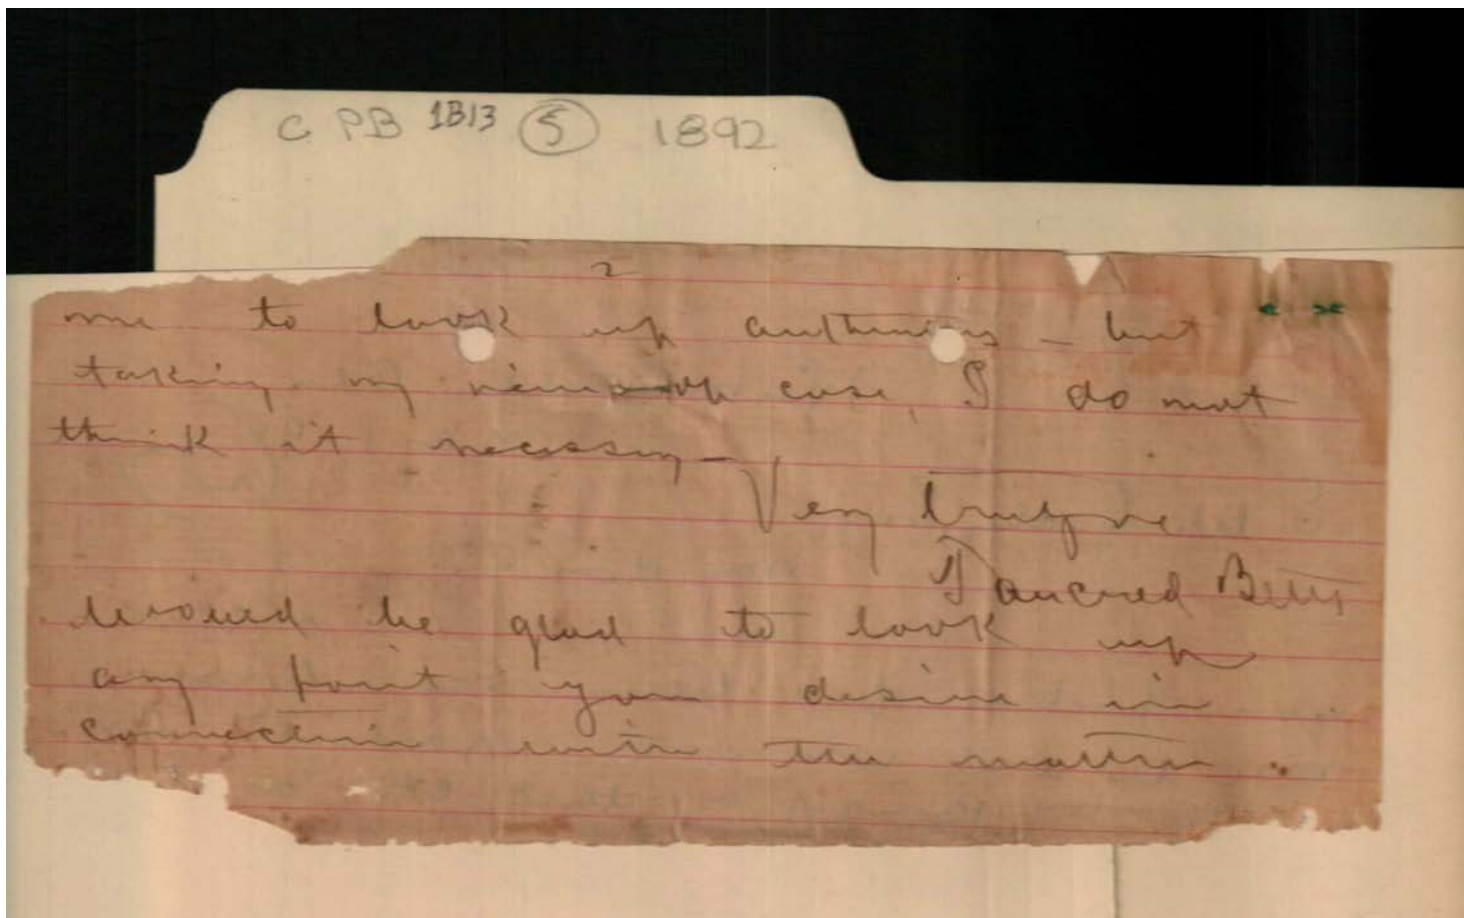 C PB 1B13 5 1892
2
me to look up authorities – but
taking my view of case, I do not
think it necessary –
Very truly
Tancred Betts
would be glad to look up
any point you desire in
connection with the matter.